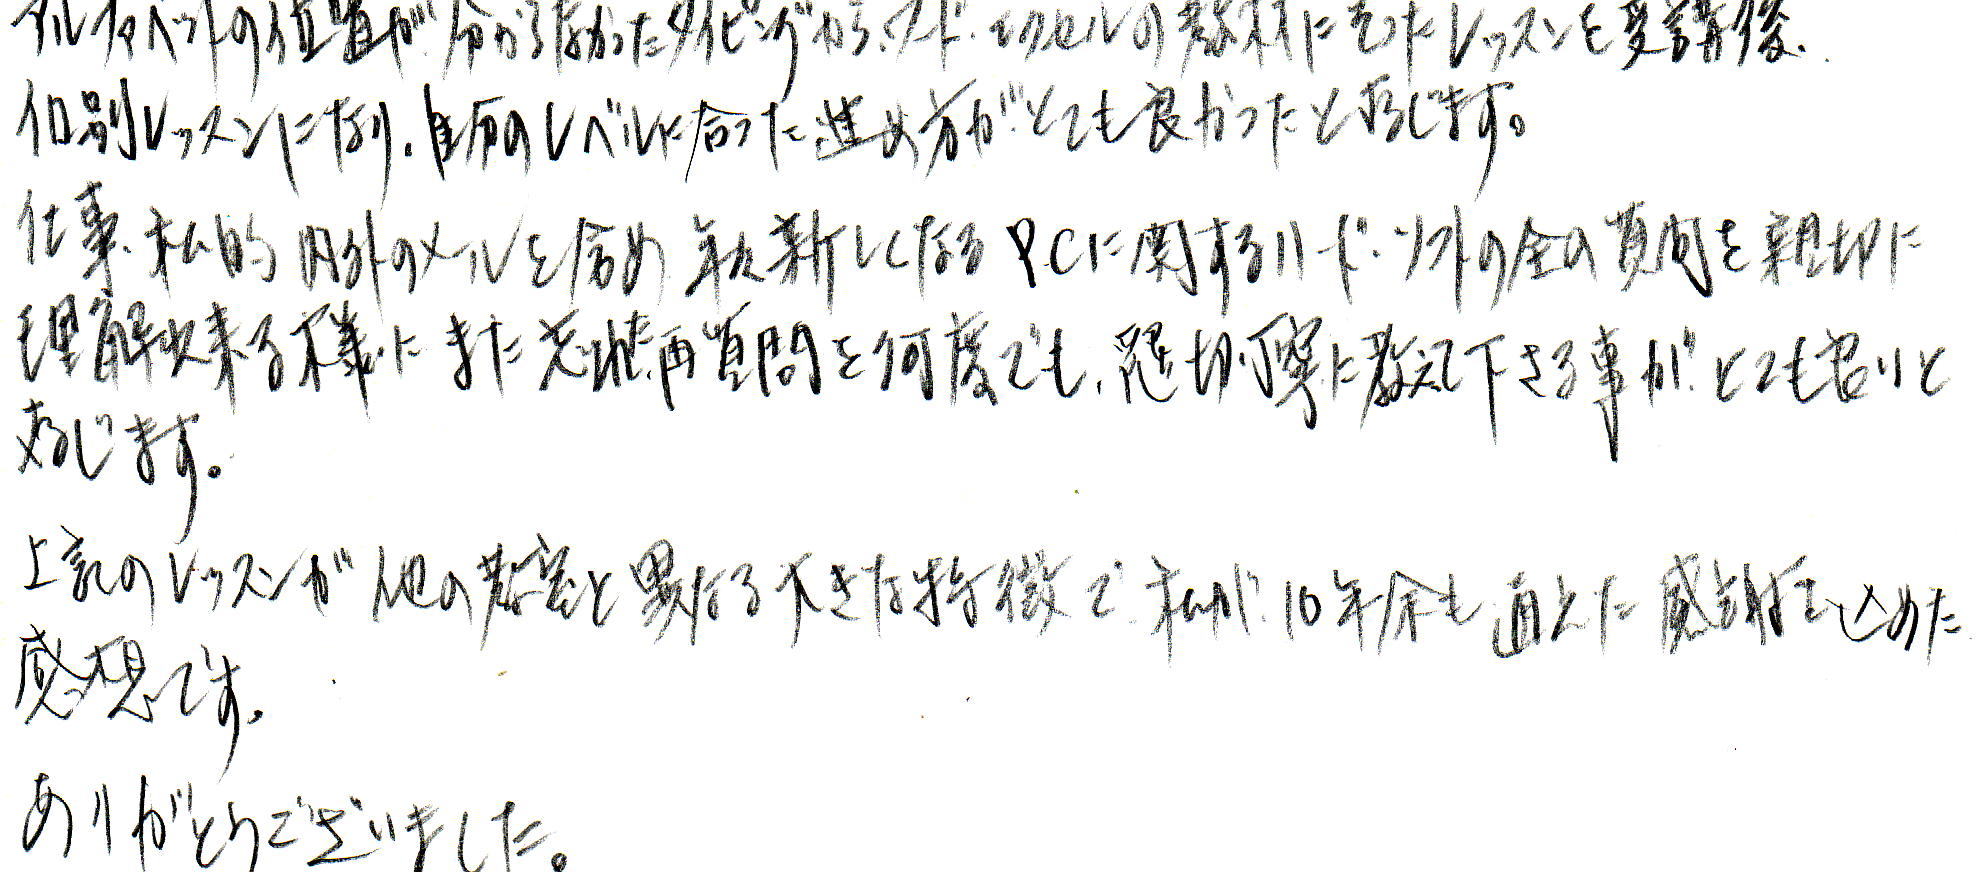 アルファベットの位置が分からなかったタイピングから、ワード・エクセルの教材にそったレッスンを受講後、
個別レッスンになり、自分のレベルに合った進め方がとても良かったと存じます。
仕事、私的 内外のメールを含め 年々新しくなるPCに関するハード・ソフトの全の質問を親切に
理解出来る様に また忘れた再質問を何度でも、懇切丁寧に教えて下さる事が、とても良いと
存じます。
上記のレッスンが他の教室と異なる大きな特徴で 私が10年余も通えた感謝を込めた
感想です。
ありがとうございました。